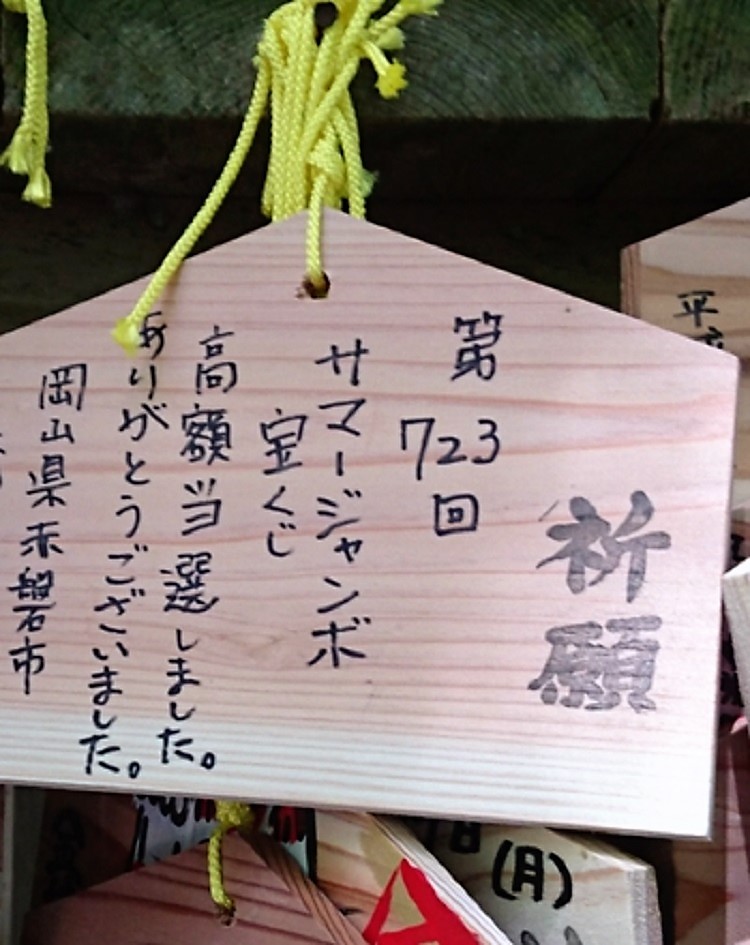 祈願
第723回
サマージャンボ
宝くじ
高額当選しました。
ありがとうございました。
岡山県赤磐石市
平成
(月)